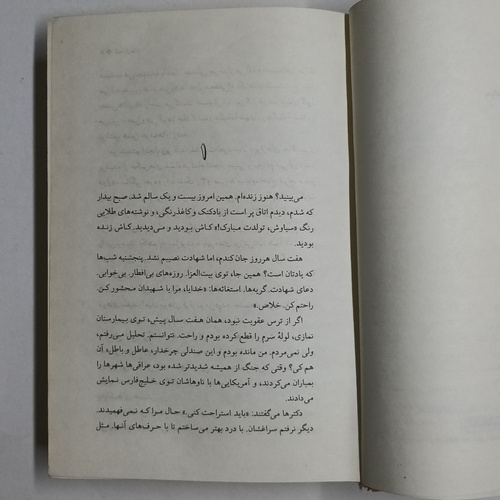 ۱
می‌بینید؟ هنوز زنده‌ام. همین امروز بیست و یک سالم شد. صبح بیدار
که شدم، دیدم اتاق پر است از بادکنک و کاغذرنگی، و نوشته‌های طلایی
رنگ «سیاوش، تولدت مبارک!» کاش بودید و می‌دیدید. کاش زنده
بودید.
هفت سال هرروز جان کندم، اما شهادت نصیبم نشد. پنجشنبه شب‌ها
که یادتان است؟ همین جا، توی بیت‌العزا. روزه‌های بی‌افطار. بی‌خوابی.
دعای شهادت. گریه‌ها. استغاثه‌ها: «خدایا، مرا با شهیدان محشور کن.
راحتم کن. خلاص.»
اگر از ترس عقوبت نبود، همان هفت سال پیش، توی بیمارستان
نمازی، لولهٔ سرم را قطع کرده بودم و راحت. نتوانستم. تحلیل می‌رفتم،
ولی نمی‌مردم. من مانده بودم و این صندلی چرخدار، عاطل و باطل. آن
هم کی؟ وقتی که جنگ از همیشه شدیدتر شده بود، عراقی‌ها شهرها را
بمباران می‌کردند، و آمریکایی‌ها با ناوهاشان توی خلیج‌فارس نمایش
می‌دادند.
دکترها می‌گفتند: «باید استراحت کنی.» حال مرا که نمی‌فهمیدند.
دیگر نرفتم سراغشان. با درد بهتر می‌ساختم تا با حرف‌های آنها. مثل